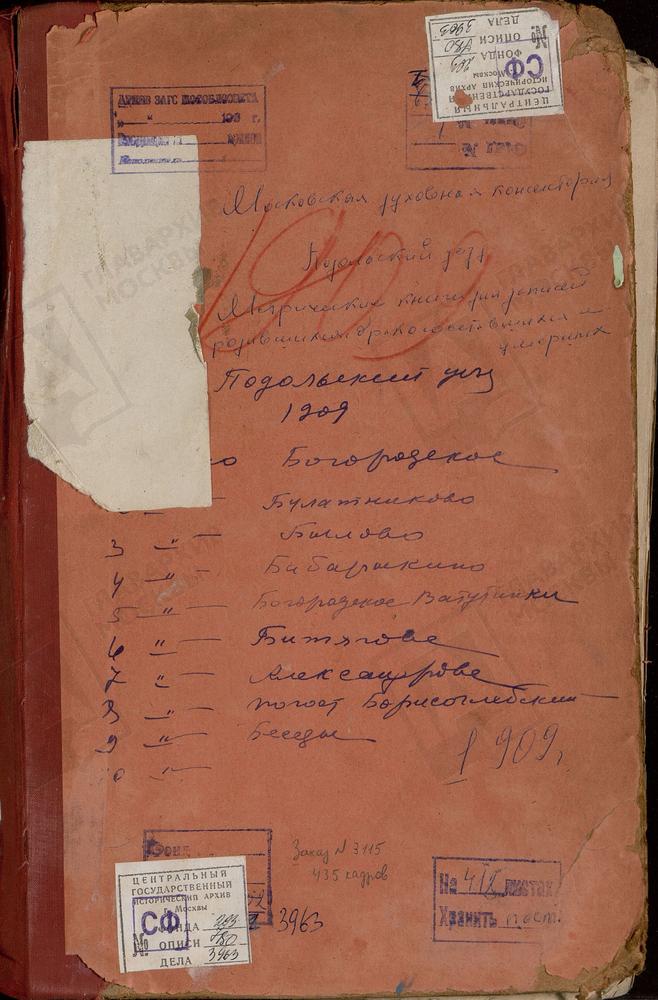 №
ДЕЛА 3963
ОПИСИ 780
ФОНДА 203
СФ
Москвы
ИСТОРИЧЕСКИЙ АРХИВ
ГОСУДАРСТВЕННЫЙ
ЦЕНТРАЛЬНЫЙ
АРХИВ ЗАГС МОСОБЛСОВЕТА
193 г.
Московская духовная консистория
Подольский уезд
1909
Метрические книги для записей
родившихся бракосочетавшихся и
умерших
Подольский уезд
1909
Богородское
Булатниково
3 —"— Былово
4 —"— Бабарыкино
5 —"— Богородское Ватутинки
6 —"— Битягово
7 —"— Александрово
8 —"— погост Борисоглебский
9 —"— Беседы
—"—
1909 г.
Заказ N 3115
435 кадров
Фонд
3963
ЦЕНТРАЛЬНЫЙ
ГОСУДАРСТВЕННЫЙ
ИСТОРИЧЕСКИЙ АРХИВ
Москвы
СФ
ФОНДА 203
№ ОПИСИ 780
ДЕЛА 3963
На листах
Хранить пост.
ГЛАВАРХИВ
МОСКВЫ